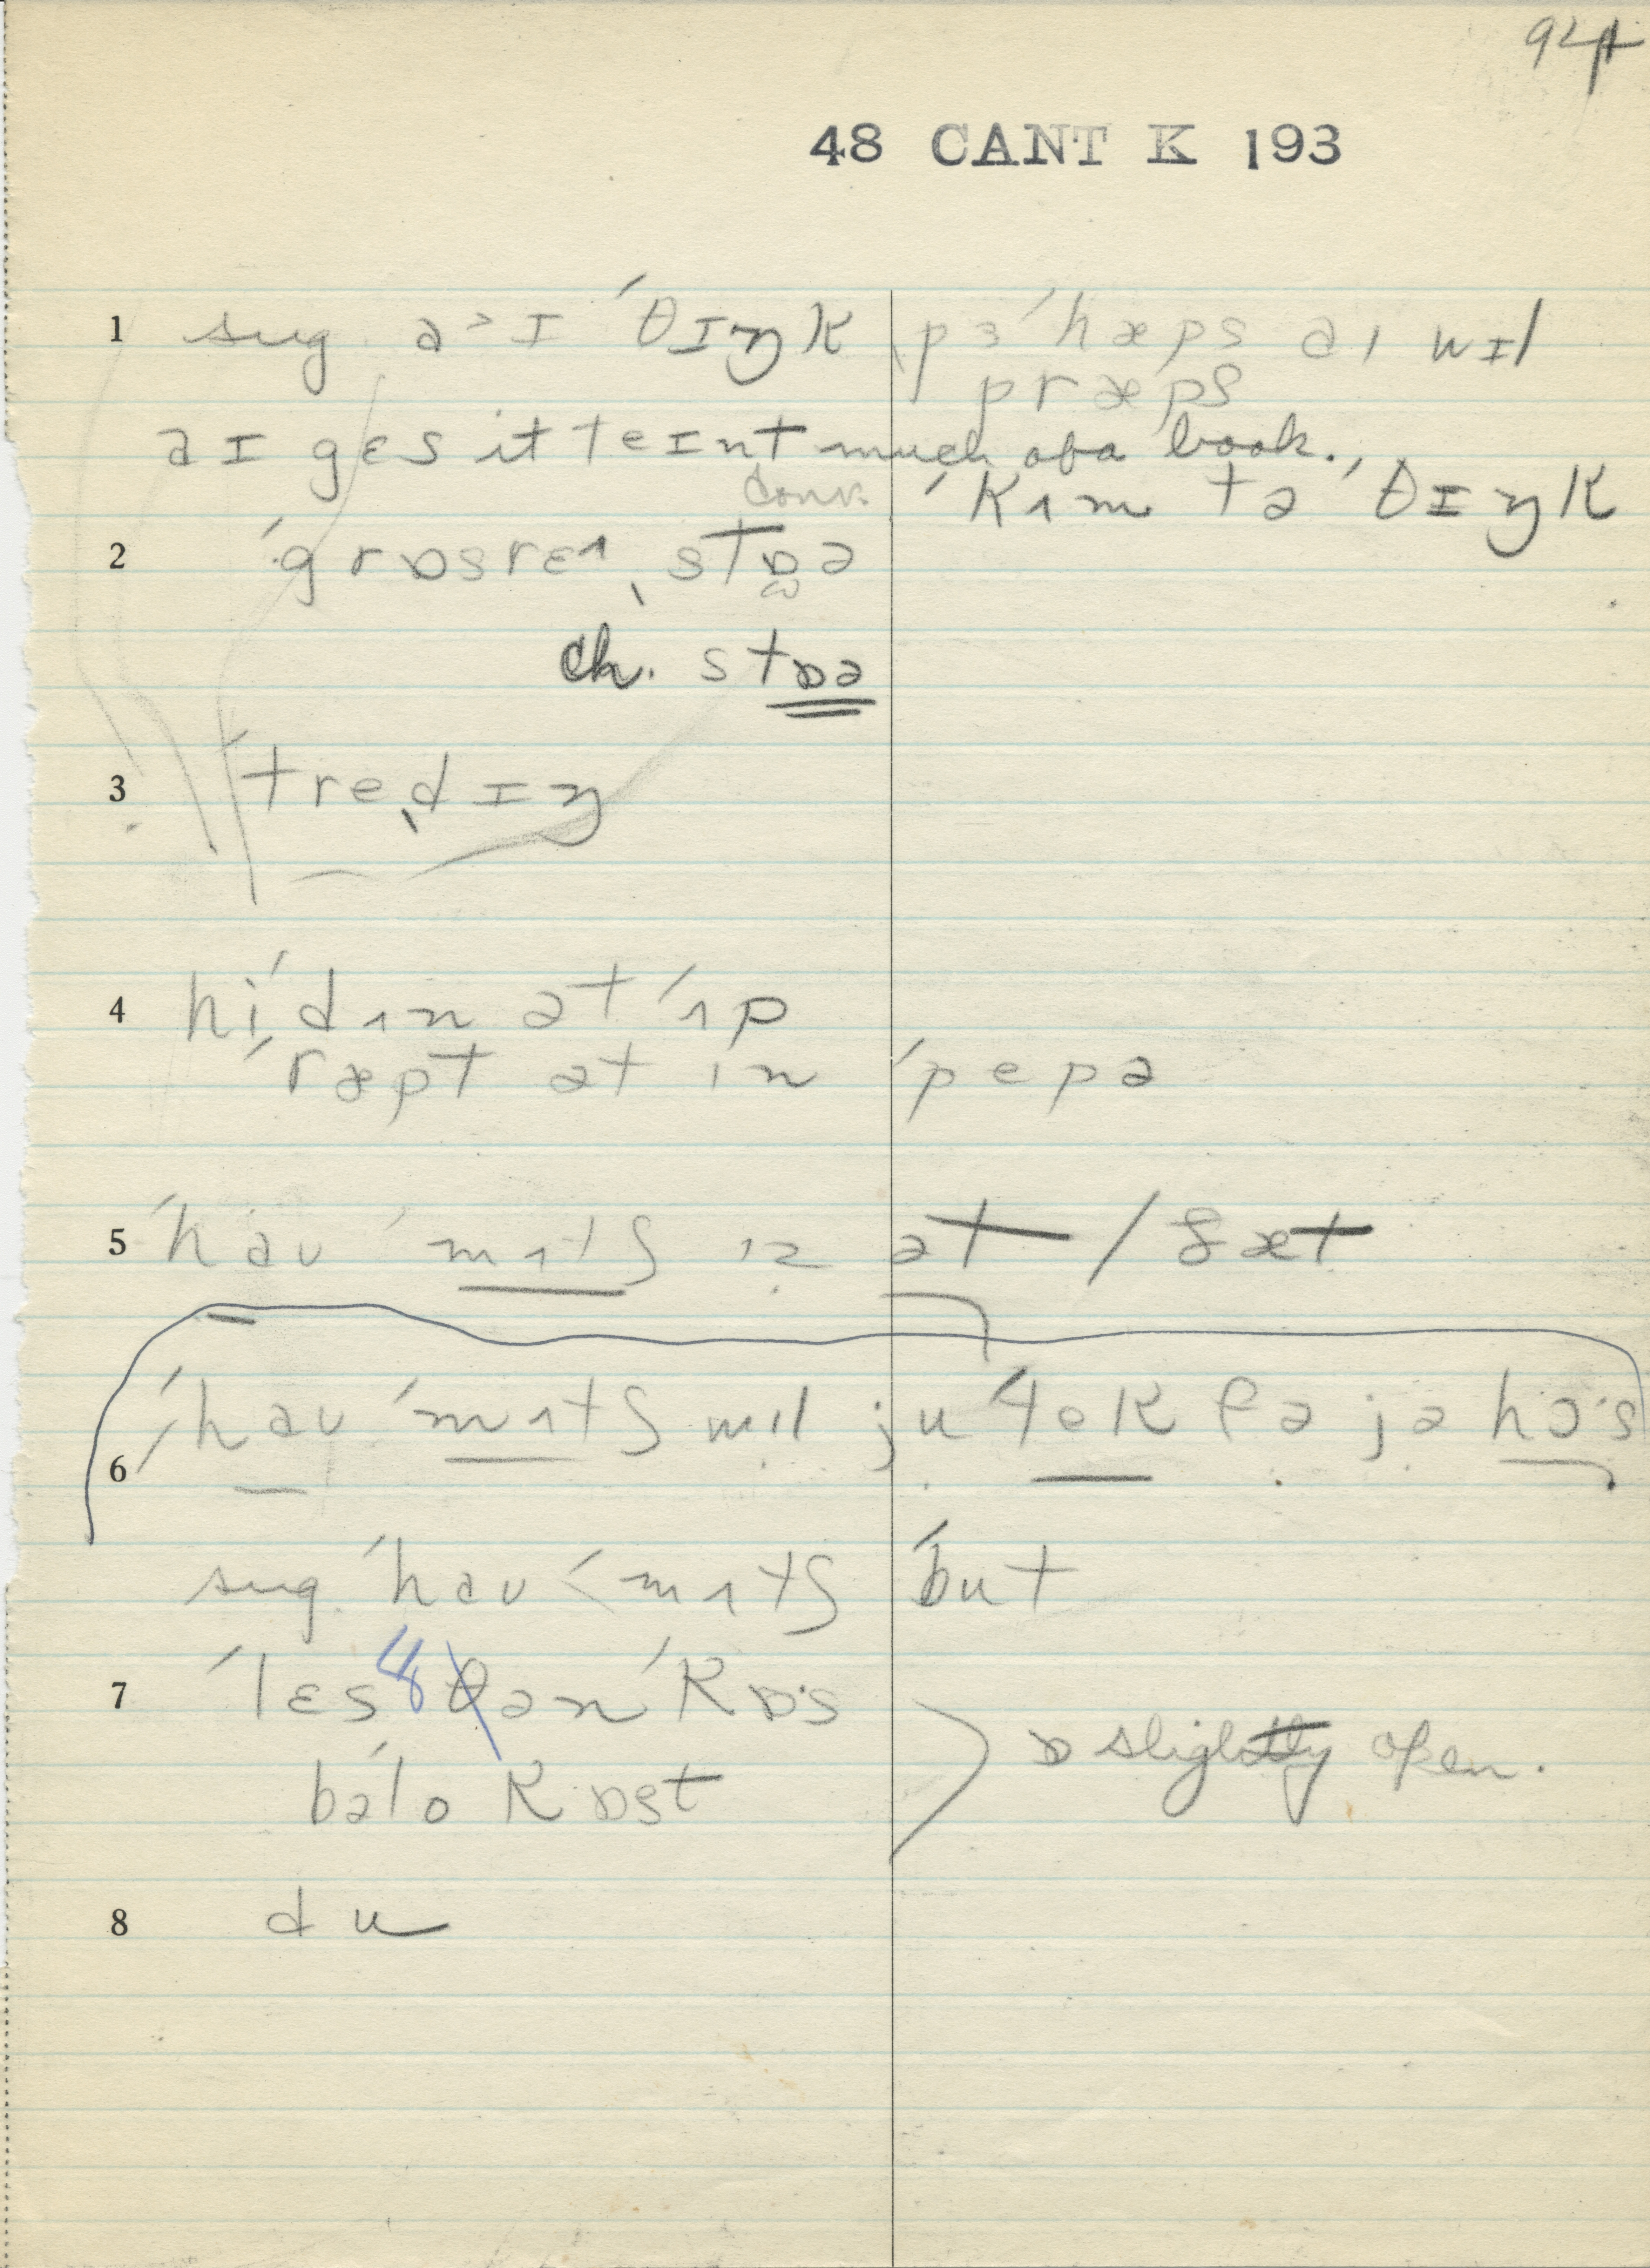 94
48 CANT K 193
1 sug. a>ɪ ˈθɪŋk pɜˈhæps aɪ wɪl
præps
aɪ gɛs it teɪnt much ofa book.
conv. ˈkʌm tə ˈθɪŋk
2 ˈgrɒsrɛɪ ˌstɒə
ch. stɒə
3 ˈtreˌdɪŋ
4 hiˈdʌn ət ˈʌp
ˈræpt ət ɪn ˈpepə
5 ˈhaʊ ˈmʌtʃ ɪz ət / ðæt
6 ˈhaʊ ˈmʌtʃ wɪl ju fə jə hɔˈs
sug. ˈhaʊ < mʌtʃ ˈbut
7 ˈlɛs ðən ˈkɒˑs
bəˈlo kɒst
ɒ slightly open.
8 du